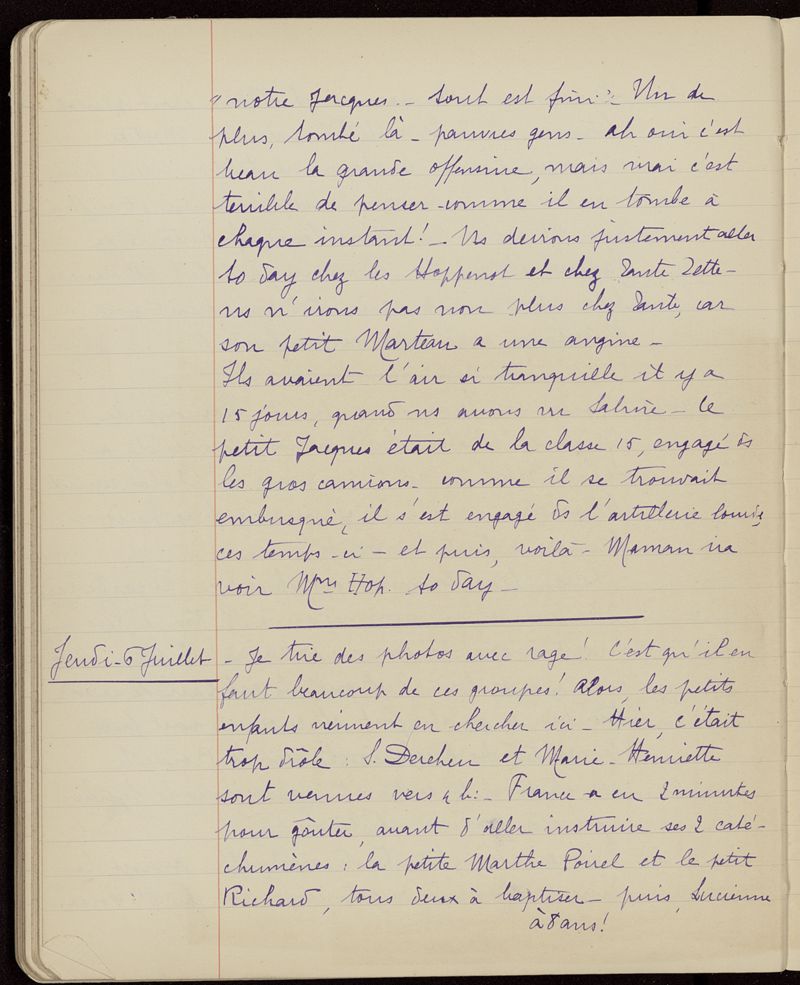 "notre Jacques - tout est fini" - Un de
plus, tombé là - pauvres gens - ah oui c'est
beau la grande offensive, mais vrai c'est
terrible de penser comme il en tombe à
chaque instant! - Ns devions justement aller
to day chez les Hoppenot et chez Tante Zette -
ns n'irons pas non plus chez Tante, car
son petit Marteau a une angine -
Ils avaient l'air si tranquille il y a
15 jours, quand ns avons vu Sabine - le
petit Jacques était de la classe 15, engagé ds
les gros camions - comme il se trouvait
embusqué, il s'est engagé ds l'artillerie lourde,
ces temps-ci - et puis, voilà - Maman ira
voir Mme Hop. to day -
Jeudi - 6 Juillet - Je tire des photos avec rage! C'est qu'il en
faut beaucoup de ces groupes! Alors, les petits
enfants viennent en chercher ici - Hier, c'était
trop drôle : S. Dercheu et Marie-Henriette
sont venues vers 4 h: - France a eu 2 minutes
pour goûter, avant d'aller instruire ses 2 caté-
chumènes : la petite Marthe Poirel et le petit
Richard, tous deux à baptiser - puis, Lucienne
à 8 ans!